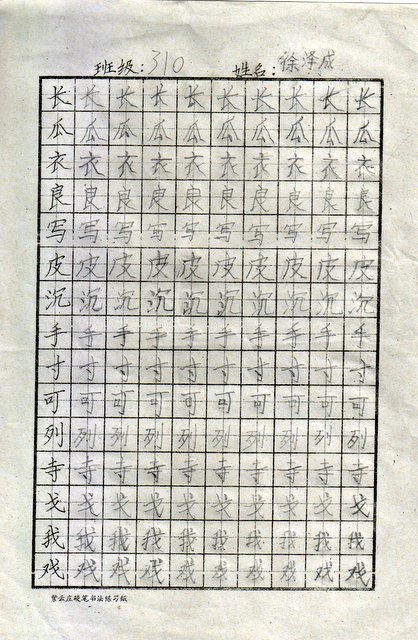 班级：310 姓名：徐泽成
长长长长长长长长长长
瓜瓜瓜瓜瓜瓜瓜瓜瓜瓜
衣衣衣衣衣衣衣衣衣衣
良良良良良良良良良良
写写写写写写写写写写
皮皮皮皮皮皮皮皮皮皮
沉沉沉沉沉沉沉沉沉沉
手手手手手手手手手手
寸寸寸寸寸寸寸寸寸寸
可可可可可可可可可可
列列列列列列列列列列
寺寺寺寺寺寺寺寺寺寺
戈戈戈戈戈戈戈戈戈戈
我我我我我我我我我我
戏戏戏戏戏戏戏戏戏戏
紫云庄硬笔书法练习纸